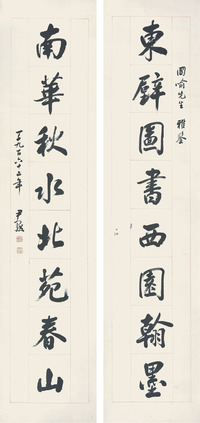 東壁圖書西園翰墨
國瑜先生 雅鑒
南華秋水北苑春山
一千九百六十三年
尹默